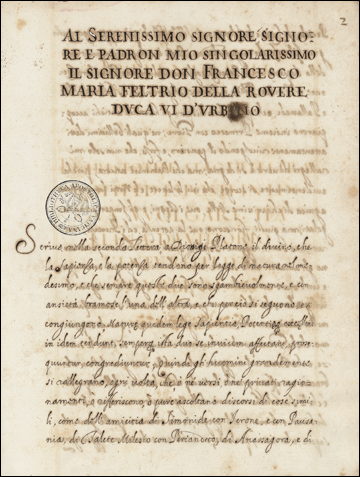 2
AL SERENISSIMO SIGNORE SIGNO=
RE E PADRON MIO SINGOLARISSIMO
IL SIGNORE DON FRANCESCO
MARIA FELTRIO DELLA ROVERE
DVCA VI D'VRBINO
Scriue nella seconda lettera a Dionigi Platone il diuino, che
la sapienza, e la potenza tendono per legge di natura al me=
desimo, e che sempre queste due sono scambieuolmente, e con
ansietà tramose l'una dell'altra, e che perciò si seguono, e si
congiungono. Natura quidem lege Sapientia, Potentiaq.
idem tendunt, semperq. ista duo se inuicem affectant, prose=
quuntur, congrediuntur, quindi gli huomini grandemente
si rallegrano, ogni uolta, che, o ne uersi, o ne priuati ragio=
namenti, o referiscono, ò pure ascoltano discorsi di cose simi=
li, come dell'amicitia di Simonide con Ierone, e con Pausa=
nia, di Talete Milesio con Periandro, di Anassagora, e di